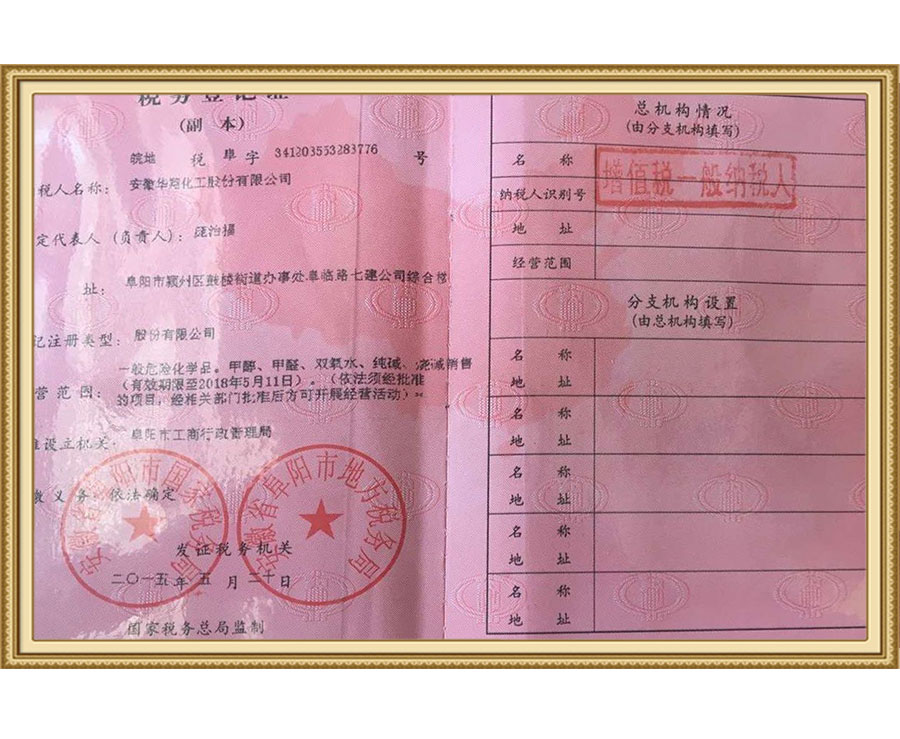 税务登记证
(副 本)
皖地 税 阜 字 341203553283776 号
税人名称：安徽华翔化工股份有限公司
定代表人（负责人）：庞治
址：阜阳市颍州区鼓楼街道办事处阜临路七建公司综合楼
记注册类型：股份有限公司
营范围：一般危险化学品。甲醇、甲醛、双氧水、纯碱、 销售
（有效期限至2018年5月11日）。（依法须经批准
的项目，经相关部门批准后方可开展经营活动）**
准设立机关：阜阳市工商行政管理局
缴义务：依法确定
安徽省阜阳市国家税务局
安徽省阜阳市地方税务局
发证税务机关
二〇一五年五月二十日
国家税务总局监制
总机构情况
(由分支机构填写)
名 称
增值税一般纳税人
纳税人识别号
地 址
经营范围
分支机构设置
(由总机构填写)
名 称
地 址
名 称
地 址
名 称
地 址
名 称
地 址
名 称
地 址